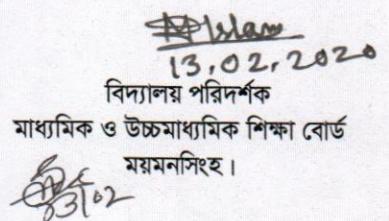 Islam
13.02.2020
বিদ্যালয় পরিদর্শক
মাধ্যমিক ও উচ্চমাধ্যমিক শিক্ষা বোর্ড
ময়মনসিংহ।